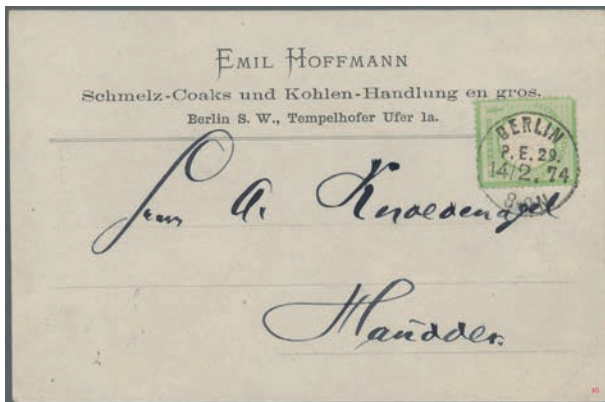 EMIL HOFFMANN
Schmelz-Coaks und Kohlen-Handlung en gros.
Berlin S. W., Tempelhofer Ufer 1a.
BERLIN
P. E. 29.
14/2. 74
8-9N
Herrn A.